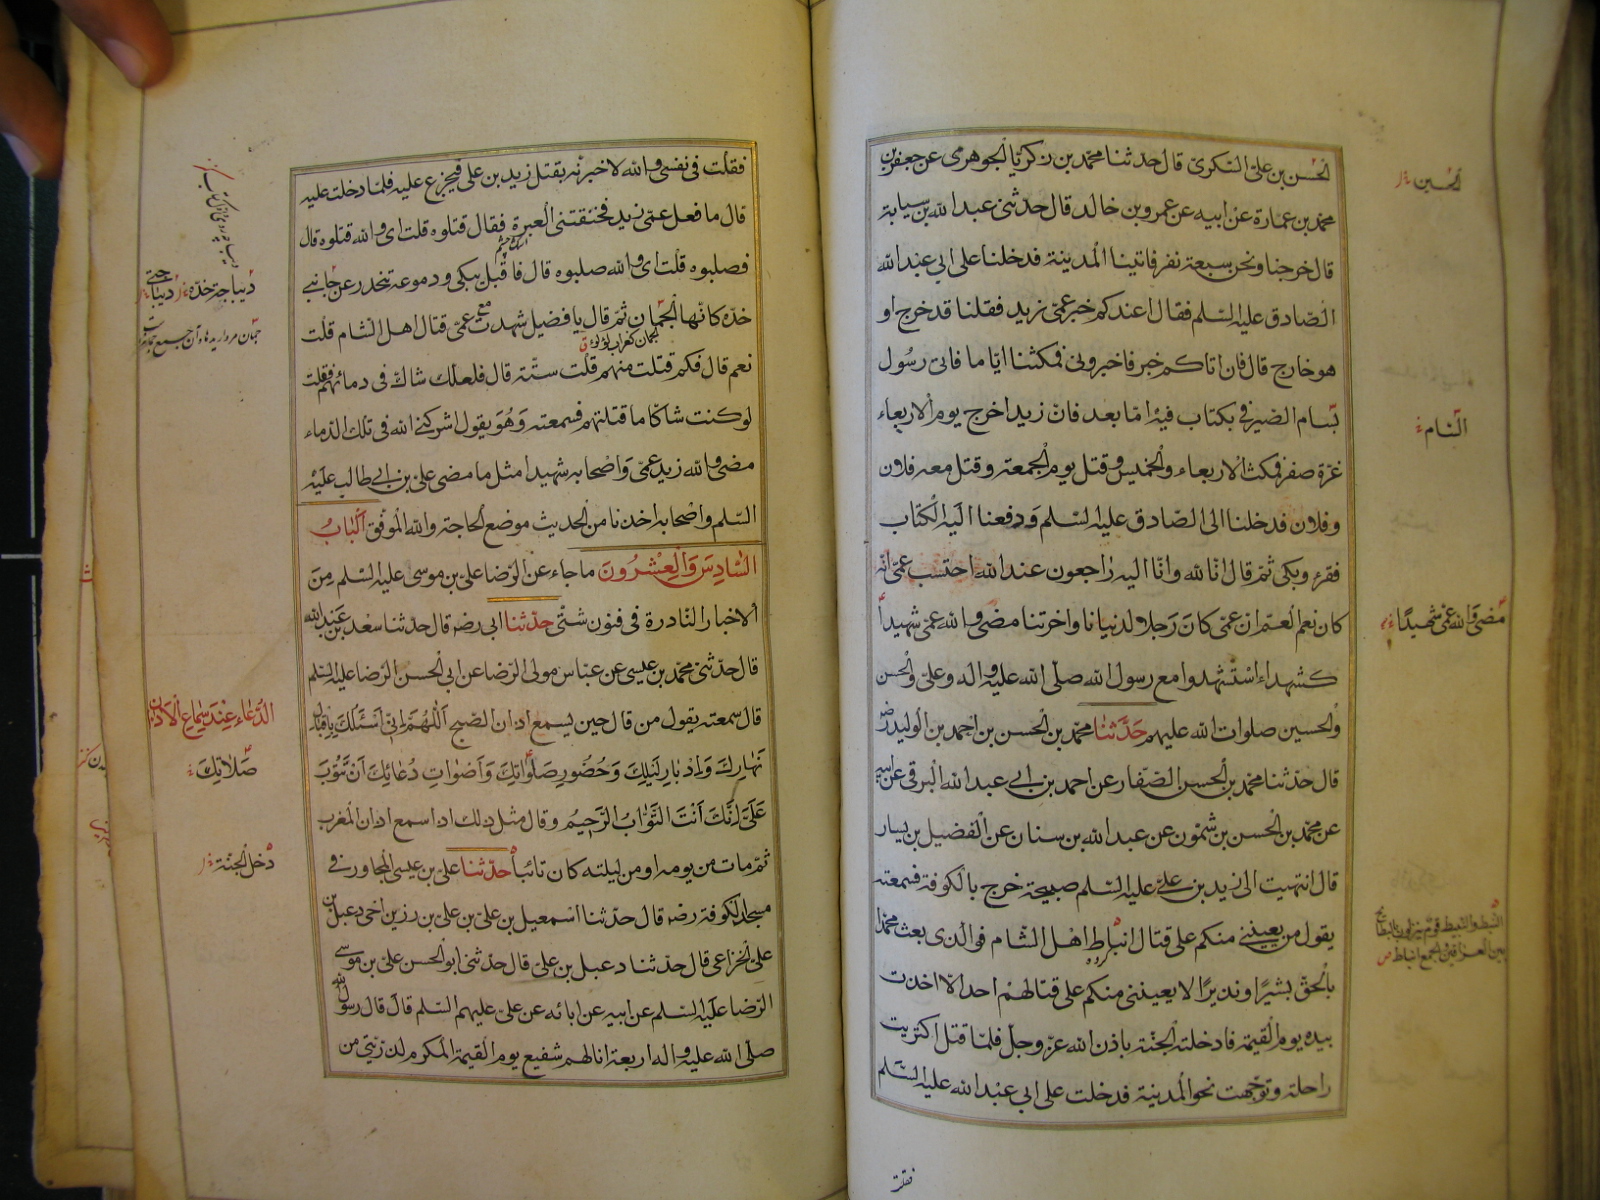 الحسن بن علی السكری قال حدثنا محمد بن زكريا الجوهری عن جعفر بن
محمد بن عمارة عن ابيه عن عمرو بن خالد قال حدثنی عبد الله بن سيابة
قال خرجنا ونحن سبعة نفر فاتينا المدينة فدخلنا علی ابی عبد الله
الصادق عليه السلم فقال اعندكم خبر عمی زيد فقلنا قد خرج او
هو خارج قال فان اتاكم خبر فاخبرونی فمكثنا اياما فاتی رسول
بسام الصيرفی بكتاب فيه اما بعد فان زيدا خرج يوم الاربعاء
غرة صفر فمكث الاربعاء والخميس وقتل يوم الجمعة وقتل معه فلان
وفلان فدخلنا الی الصادق عليه السلم ودفعنا اليه الكتاب
فقرء وبكی ثم قال انا لله وانا اليه راجعون عند الله احتسب عمی انه
كان نعم العم ان عمی كان رجلا لدنيانا واخرتنا مضی والله عمی شهيدا
كشهداء استشهدوا مع رسول الله صلی الله عليه واله وعلی والحسن
والحسين صلوات الله عليهم حدثنا محمد بن الحسن بن احمد بن الوليد رضه
قال حدثنا محمد بن الحسن الصفار عن احمد بن ابی عبد الله البرقی عن ابيه
عن محمد بن الحسن بن شمون عن عبد الله بن سنان عن الفضيل بن يسار
قال انتهيت الی زيد بن علی عليه السلم صبيحة خرج بالكوفة فسمعته
يقول من يعيننی منكم علی قتال انباط اهل الشام فوالذی بعث محمدا
بالحق بشيرا ونذيرا لا يعيننی منكم علی قتالهم احد الا اخذت
بيده يوم القيمة فادخلته الجنة باذن الله عز وجل فلما قتل اكتريت
راحلة وتوجهت نحو المدينة فدخلت علی ابی عبد الله عليه السلم
فقلت
الحسين
البسام
مضی والله عمی شهيدا
النبط والنبيط قوم ينزلون بالبطائح
بين العراقين والجمع انباط ص
فقلت فی نفسی والله لا خبرنه بقتل زيد بن علی فيجزع عليه فلما دخلت عليه
قال ما فعل عمی زيد فخنقتنی العبرة فقال قتلوه قلت ای والله قتلوه قال
فصلبوه قلت ای والله صلبوه قال فاقبل يبكی ودموعه تنحدر عن جانبی
خده كانها الجمان ثم قال يا فضيل شهدت مع عمی قتال اهل الشام قلت
نعم قال فكم قتلت منهم قلت ستة قال فلعلك شاك فی دمائهم فقلت
لو كنت شاكا ما قتلتهم فسمعته وهو يقول اشركنی الله فی تلك الدماء
مضی والله زيد عمی واصحابه شهيدا مثل ما مضی علی بن ابی طالب عليه
السلم واصحابه اخذنا من الحديث موضع الحاجة والله الموفق الباب
السادس والعشرون ما جاء عن الرضا علی بن موسی عليه السلم من
الاخبار النادرة فی فنون شتی حدثنا ابی رضه قال حدثنا سعد بن عبد الله
قال حدثنی محمد بن عيسی عن عباس مولی الرضا عن ابی الحسن الرضا عليه السلم
قال سمعته يقول من قال حين يسمع اذان الصبح اللهم انی اسئلك باقبال
نهارك وادبار ليلك وحضور صلواتك واصوات دعائك ان تتوب
علی انك انت التواب الرحيم وقال مثل ذلك اذا سمع اذان المغرب
ثم مات من يومه او من ليلته كان تائبا حدثنا علی بن عيسی المجاور فی
مسجد الكوفة رضه قال حدثنا اسمعيل بن علی بن علی بن رزين اخی دعبل بن
علی الخزاعی قال حدثنا دعبل بن علی قال حدثنی ابو الحسن علی بن موسی
الرضا عليه السلم عن ابيه عن ابائه عن علی عليهم السلم قال قال رسول الله
صلی الله عليه واله اربعة انا لهم شفيع يوم القيمة المكرم لذريتی من
ديباجة خده ديباجتی
الدعاء عند سماع الاذان
صلاتك
دخل الجنة